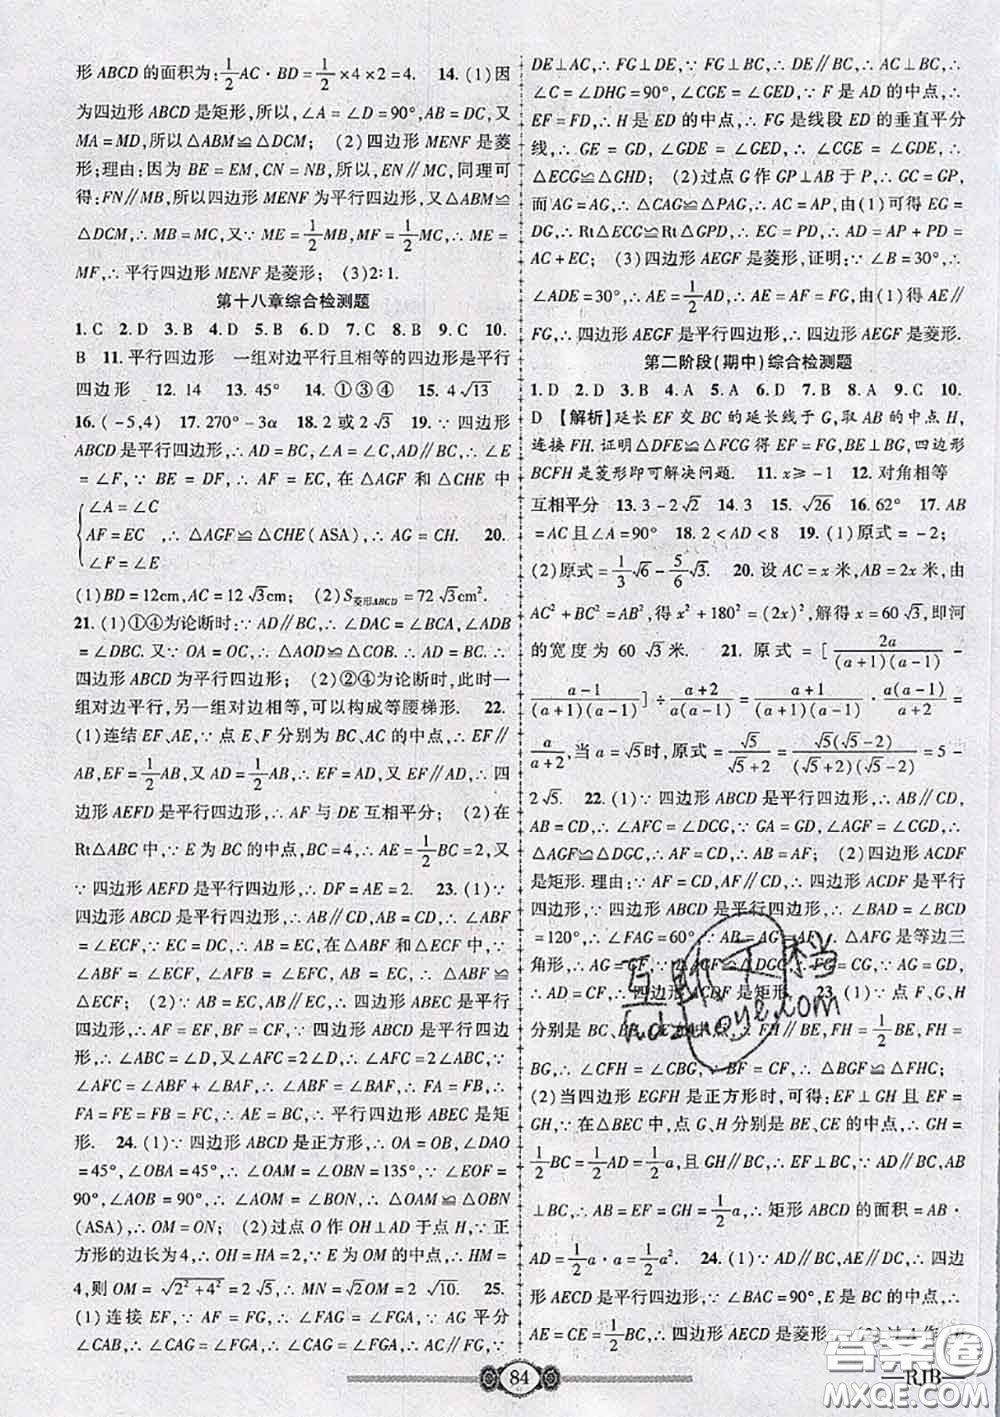 形ABCD的面积为:1/2AC·BD=1/2×4×2=4. 14.(1)因
为四边形ABCD是矩形,所以∠A=∠D=90°,AB=DC,又
MA=MD,所以△ABM≌△DCM; (2)四边形MENF是菱
形;理由:因为BE=EM,CN=NB,所以EN∥MC,同理可
得:FN∥MB,所以四边形MENF为平行四边形,又△ABM≌
△DCM,∴MB=MC,又∵ME=1/2MB,MF=1/2MC,∴ME=
MF,∴平行四边形MENF是菱形; (3)2:1.
第十八章综合检测题
1.C 2.D 3.B 4.D 5.B 6.D 7.C 8.B 9.C 10.
B 11.平行四边形 一组对边平行且相等的四边形是平行
四边形 12.14 13.45° 14.①③④ 15.4√13
16.(-5,4) 17.270°-3α 18.2或2√3 19.∵四边形
ABCD是平行四边形,∴AD=BC,∠A=∠C,AD∥BC,∴∠E
=∠F,∵BE=DF,∴AF=EC,在△AGF和△CHE中
∠A=∠C
AF=EC ,∴△AGF≌△CHE(ASA),∴AG=CH. 20.
∠F=∠E
(1)BD=12cm,AC=12√3cm; (2)S菱形ABCD=72√3cm².
21.(1)①④为论断时:∵AD∥BC,∴∠DAC=∠BCA,∠ADB
=∠DBC.又∵OA=OC,∴△AOD≌△COB.∴AD=BC.∴
四边形ABCD为平行四边形; (2)②④为论断时,此时一
组对边平行,另一组对边相等,可以构成等腰梯形. 22.
(1)连结EF、AE,∵点E、F分别为BC、AC的中点,∴EF∥
AB,EF=1/2AB,又AD=1/2AB,∴EF=AD,又EF∥AD,∴四
边形AEFD是平行四边形,∴AF与DE互相平分; (2)在
Rt△ABC中,∵E为BC的中点,BC=4,∴AE=1/2BC=2,又
∵四边形AEFD是平行四边形,∴DF=AE=2. 23.(1)∵
四边形ABCD是平行四边形,∴AB∥CD,AB=CD,∴∠ABF
=∠ECF,∵EC=DC,∴AB=EC,在△ABF和△ECF中,
∠ABF=∠ECF,∠AFB=∠EFC,AB=EC,∴△ABF≌
△ECF; (2)∵AB=EC,AB∥EC,∴四边形ABEC是平行
四边形,∴AF=EF,BF=CF,∵四边形ABCD是平行四边
形,∴∠ABC=∠D,又∵∠AFC=2∠D,∴∠AFC=2∠ABC,
∵∠AFC=∠ABF+∠BAF,∴∠ABF=∠BAF,∴FA=FB,∴
FA=FE=FB=FC,∴AE=BC,∴平行四边形ABEC是矩
形. 24.(1)∵四边形ABCD是正方形,∴OA=OB,∠DAO
=45°,∠OBA=45°,∴∠OAM=∠OBN=135°,∵∠EOF=
90°,∠AOB=90°,∴∠AOM=∠BON,∴△OAM≌△OBN
(ASA),∴OM=ON; (2)过点O作OH⊥AD于点H,∵正
方形的边长为4,∴OH=HA=2,∵E为OM的中点,∴HM=
4,则OM=√(2²+4²)=2√5,∴MN=√2OM=2√10. 25.
(1)连接EF,∵AF=FG,∴∠FAG=∠FGA,∵AG平分
∠CAB,∴∠CAG=∠FAG,∴∠CAG=∠FGA,∴AC∥FG,∵
DE⊥AC,∴FG⊥DE,∵FG⊥BC,∴DE∥BC,∴AC⊥BC,∴
∠C=∠DHG=90°,∠CGE=∠GED,∵F是AD的中点,∴
EF=FD,∴H是ED的中点,∴FG是线段ED的垂直平分
线,∴GE=GD,∠GDE=∠GED,∴∠CGE=∠GDE,∴
△ECG≌△GHD; (2)过点G作GP⊥AB于P,∴GC=GP,
而AG=AG,∴△CAG≌△PAG,∴AC=AP,由(1)可得EG=
DG,∴Rt△ECG≌Rt△GPD,∴EC=PD,∴AD=AP+PD=
AC+EC; (3)四边形AEGF是菱形,证明:∵∠B=30°,∴
∠ADE=30°,∴AE=1/2AD,∴AE=AF=FG,由(1)得AE∥
FG,∴四边形AEGF是平行四边形,∴四边形AEGF是菱形.
第二阶段(期中)综合检测题
1.D 2.D 3.B 4.A 5.A 6.D 7.B 8.A 9.C 10.
D【解析】延长EF交BC的延长线于G,取AB的中点H,
连接FH.证明△DFE≌△FCG得EF=FG,BE⊥BG,四边形
BCFH是菱形即可解决问题. 11.x≥-1 12.对角相等
互相平分 13.3-2√2 14.3 15.√26 16.62° 17.AB
=AC且∠A=90° 18.2<AD<8 19.(1)原式=-2;
(2)原式=1/3√6-5/6√3. 20.设AC=x米,∴AB=2x米,由
AC²+BC²=AB²,得x²+180²=(2x)²,解得x=60√3,即河
的宽度为60√3米. 21.原式=[2a/((a+1)(a-1))-
(a-1)/((a+1)(a-1))]÷(a+2)/(a-1)=(a+1)/((a+1)(a-1))·(a-1)/(a+2)=
a/(a+2),当a=√5时,原式=√5/(√5+2)=√5(√5-2)/((√5+2)(√5-2))=5-
2√5. 22.(1)∵四边形ABCD是平行四边形,∴AB∥CD,
AB=CD,∴∠AFC=∠DCG,∵GA=GD,∠AGF=∠CGD,∴
△AGF≌△DGC,∴AF=CD,∴AB=AF; (2)四边形ACDF
是矩形.理由:∵AF=CD,AF∥CD,∴四边形ACDF是平行
四边形,∵四边形ABCD是平行四边形,∴∠BAD=∠BCD
=120°,∴∠FAG=60°,∵AB=AG=AF,∴△AFG是等边三
角形,∴AG=GF,∵△AGF≌△DGC,∴FG=CG,∵AG=GD,
∴AD=CF,∴四边形ACDF是矩形. 23.(1)∵点F、G、H
分别是BC、BE、CE的中点,∴FH∥BE,FH=1/2BE,FH=
BG,∴∠CFH=∠CBG,∵BF=CF,∴△BGF≌△FHC;
(2)当四边形EGFH是正方形时,可得:EF⊥GH且EF=
GH,∵在△BEC中,点G、H分别是BE、CE的中点,∴GH=
1/2BC=1/2AD=1/2a,且GH∥BC,∴EF⊥BC,∵AD∥BC,AB
⊥BC,∴AB=EF=GH=1/2a,∴矩形ABCD的面积=AB·
AD=1/2a·a=1/2a². 24.(1)∵AD∥BC,AE∥DC,∴四边
形AECD是平行四边形,∵∠BAC=90°,E是BC的中点,∴
AE=CE=1/2BC,∴四边形AECD是菱形. (2)过A作
84
RJB
互助文档
hdzuoye.com
答案圈
MXQE.COM